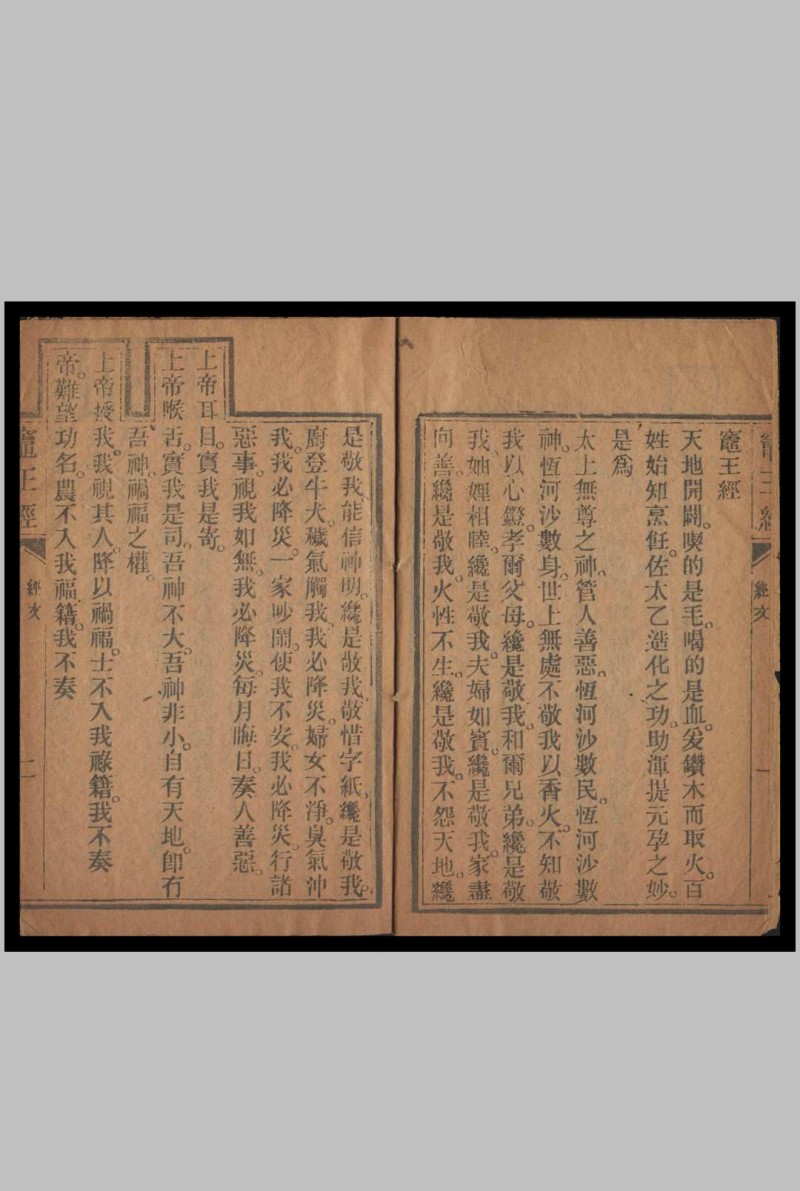 竈王經
經文
一
竈王經
天地開闢。喫的是毛。喝的是血。爰鑽木而取火。百
姓始知烹飪。佐太乙造化之功。助渾提元孕之妙。
是爲
太上無尊之神。管人善惡。恆河沙數民。恆河沙數
神。恆河沙數身。世上無處不敬我以香火。不知敬
我以心鐙。孝爾父母。纔是敬我。和爾兄弟。纔是敬
我。妯娌相睦。纔是敬我。夫婦如賓。纔是敬我。家盡
向善。纔是敬我。火性不生。纔是敬我。不怨天地。纔
是敬我。能信神明。纔是敬我。敬惜字紙。纔是敬我。
廚登牛犬。穢氣觸我。我必降災。婦女不淨。臭氣沖
我。我必降災。一家吵鬧。使我不安。我必降災。行諸
惡事。視我如無。我必降災。每月晦日。奏人善惡。
上帝耳目。實我是寄。
上帝喉舌。實我是司。吾神不大。吾神非小。自有天地。即有
吾神。禍福之權。
上帝授我。我視其人。降以禍福。士不入我祿籍。我不奏
帝。難望功名。農不入我福籍。我不奏
竈王經
經文
二